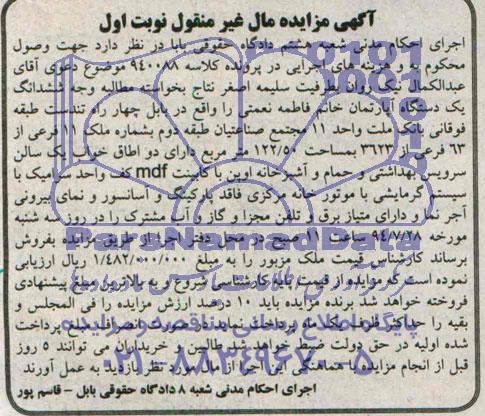 آگهی مزایده مال غیر منقول نوبت اول
اجرای احکام مدنی شعبه هشتم دادگاه حقوقی بابل در نظر دارد جهت وصول
محکوم به و هزینه های اجرایی در پرونده کلاسه ۹۴۰۰۸۸ موضوع دعوی آقای
عبدالکمال نیک روان بطرفیت سلیمه اصغر نتاج بخواسته مطالبه وجه ششدانگ
یک دستگاه آپارتمان خانم فاطمه نعمتی را واقع در بابل چهار راه تندست طبقه
فوقانی بانک ملت واحد ۱۱ مجتمع صناعتیان طبقه دوم بشماره ملک ۱۱ فرعی از
۶۳ فرعی از ۳۶۲۳ بمساحت ۱۲۲/۵۰ متر مربع دارای دو اطاق خواب یک سالن
سرویس بهداشتی و حمام و آشپزخانه اوپن با کابینت mdf کف واحد سرامیک با
سیستم گرمایشی با موتور خانه مرکزی فاقد پارکینگ و آسانسور و نمای بیرونی
آجر نما و دارای متیاز برق و تلفن مجزا و گاز و آب مشترک را در روز سه شنبه
مورخه ۹۴/۷/۲۸ ساعت ۱۱ صبح در محل دفتر اجرا از طریق مزایده بفروش
برساند کارشناس قیمت ملک مزبور را به مبلغ ۱/۴۸۲/۰۰۰/۰۰۰ ریال ارزیابی
نموده است که مزایده از قیمت پایه کارشناسی شروع و به بالاترین مبلغ پیشنهادی
فروخته خواهد شد برنده مزایده باید ۱۰ درصد ارزش مزایده را فی المجلس و
بقیه را حداکثر ظرف یک ماه پرداخت نماید در صورت انصراف مبلغ پرداخت
شده اولیه در حق دولت ضبط خواهد شد طالبین و خریداران می توانند ۵ روز
قبل از انجام مزایده با هماهنگی این اجرا از مال مورد نظر بازدید به عمل آورند
اجرای احکام مدنی شعبه ۸ دادگاه حقوقی بابل - قاسم پور
ParsNamadData
پایگاه اطلاع رسانی مناقصه و مزایده
۰۲۱-۸۸۳۴۹۶۷۰-۵